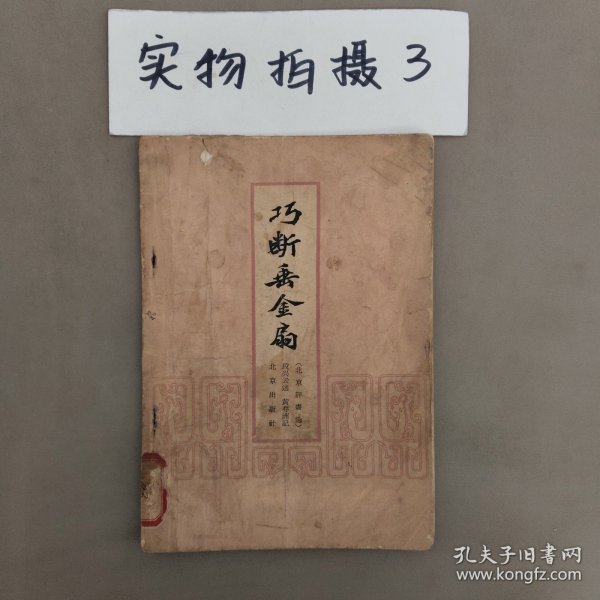 实物拍摄3
巧断垂金扇
(北京評書選)
段兴云述 黄春雨記
北京出版社
孔夫子旧书网
www.kongfz.com